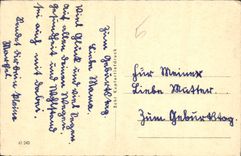 Zum Geburtstag.
Liebe Mama.
Viel Glück und viel Segen
auf allen deinen Wegen.
Gesundheit und Wohlstand
sei auch mit dabei.
Sendet dir dein kleine
Für Meiner
Lieben Mutter.
Zum Geburtstag.